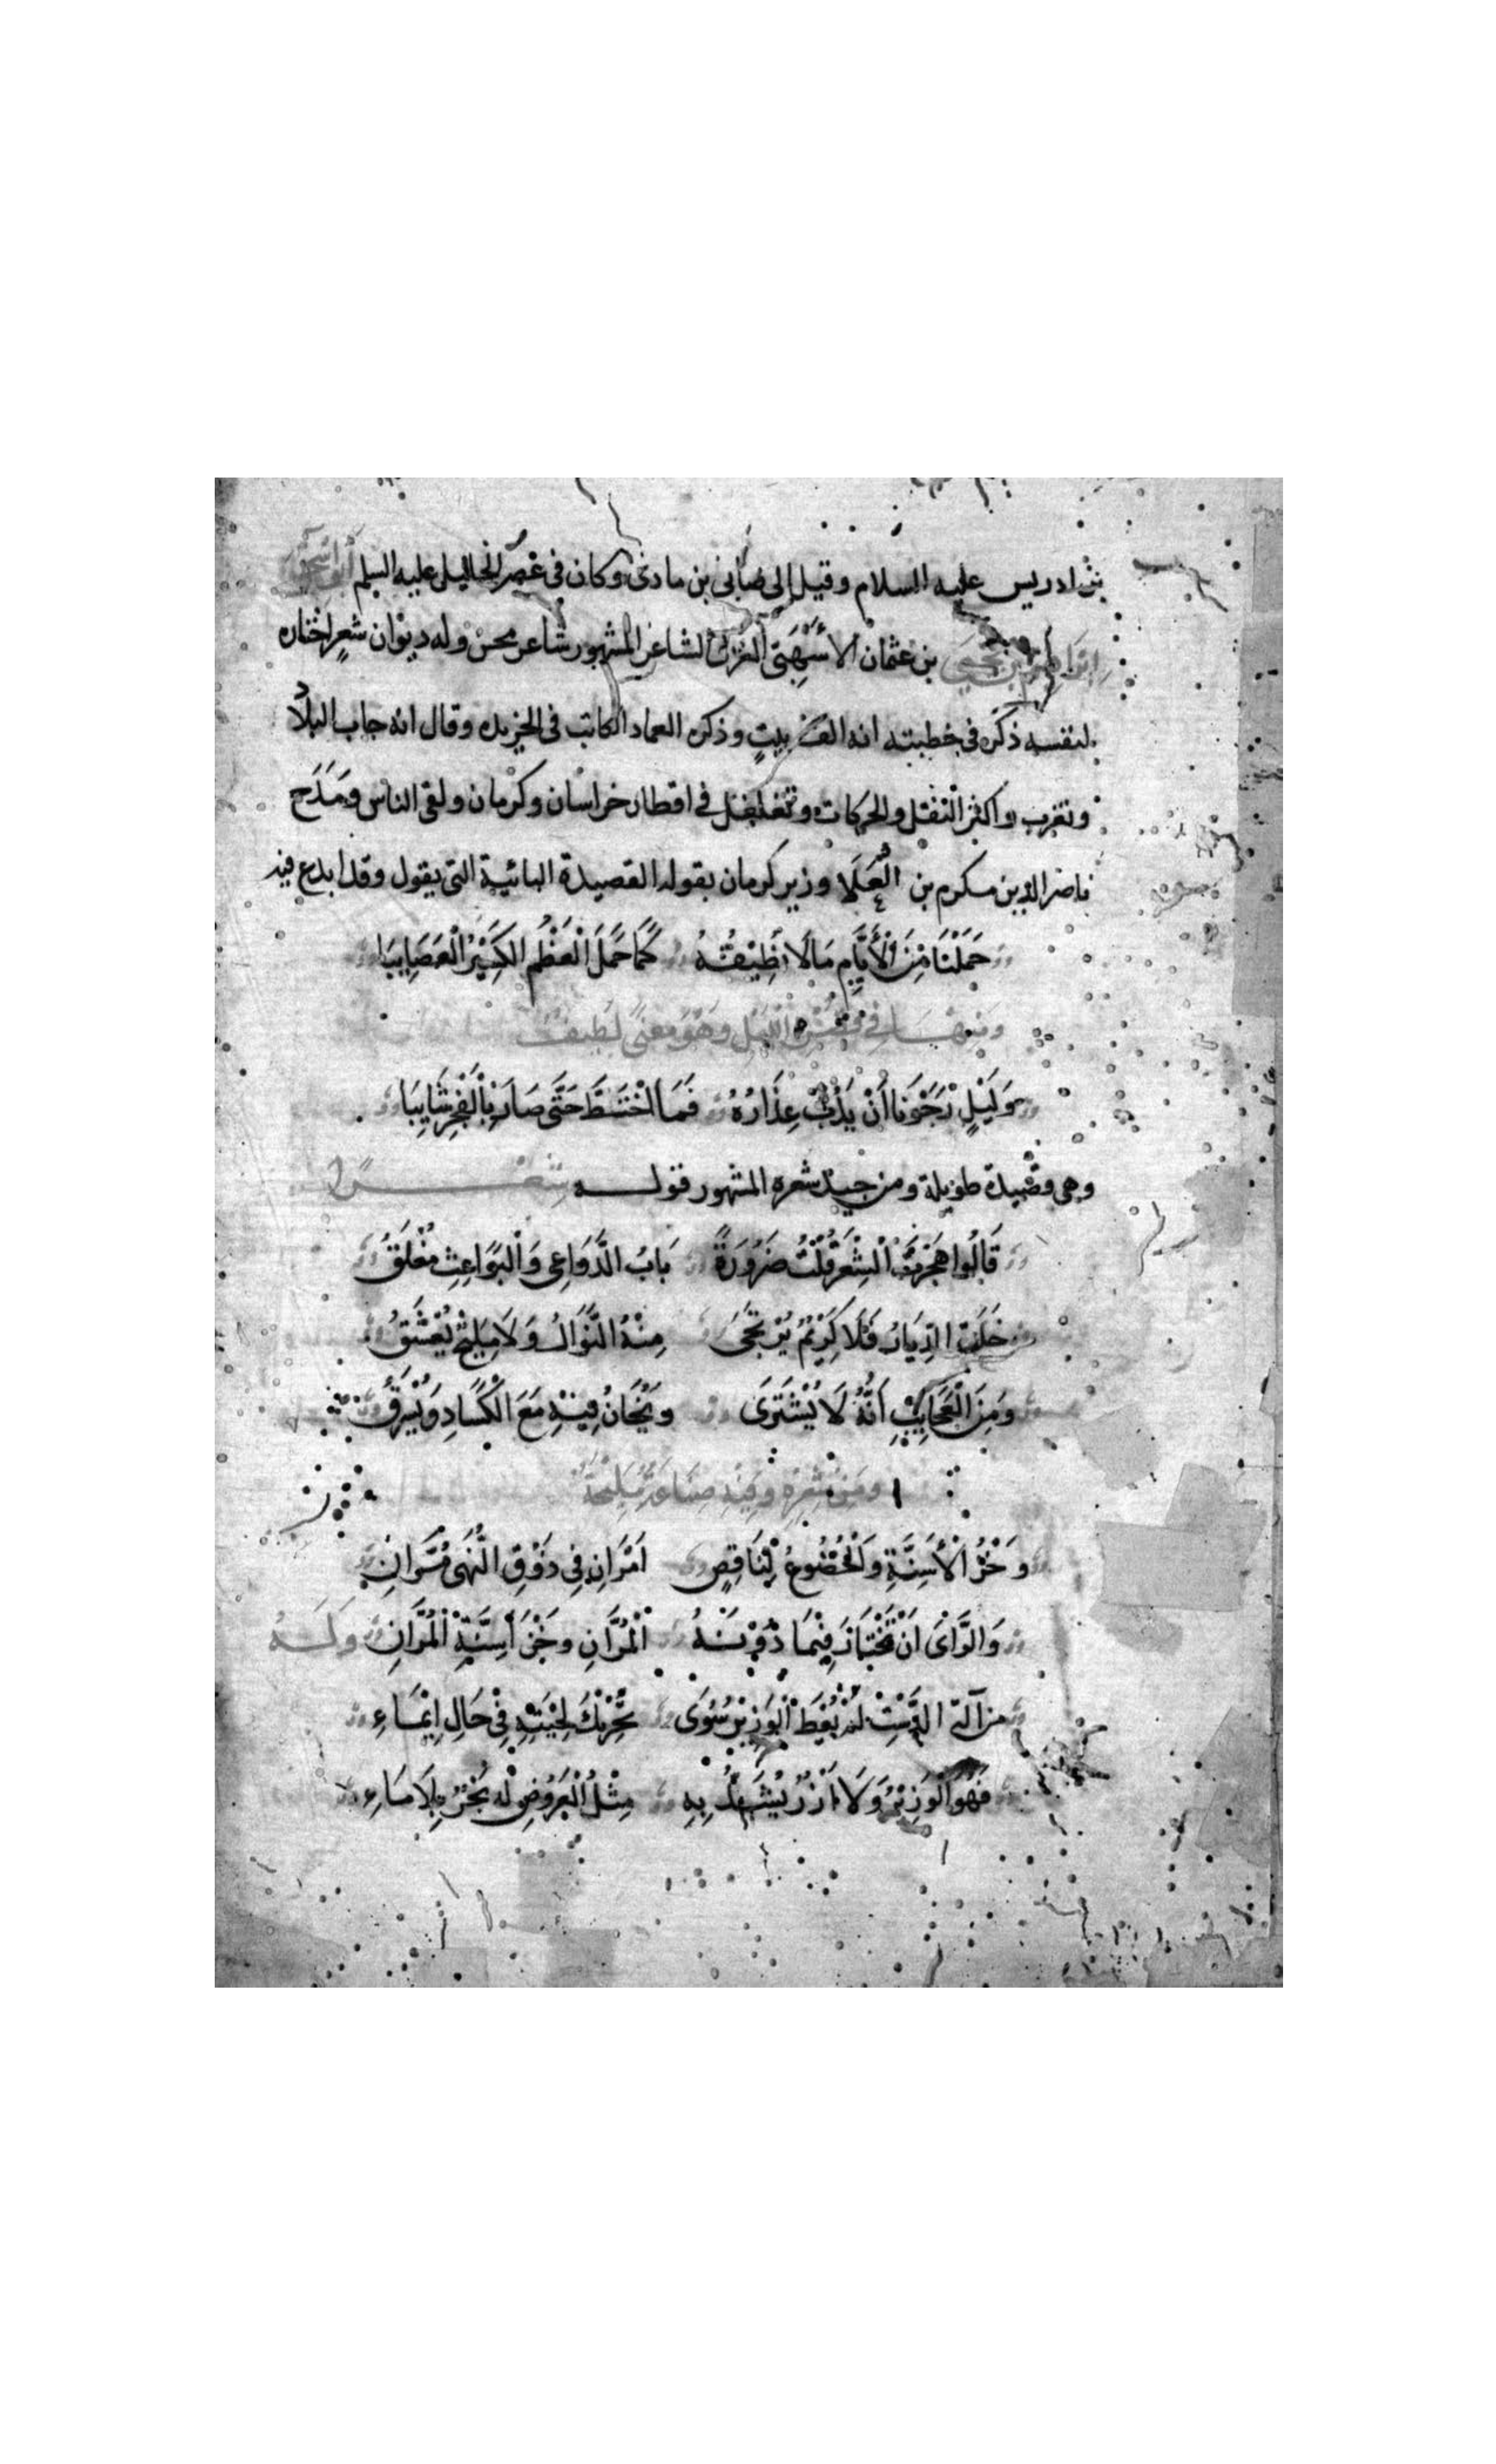 بن ادريس عليه السلام وقيل إلى صابى بن مادى وكان فى عصر الخاليل عليه السلم أبو اسحق
ابراهيم بن يحيى بن عثمان الأسهبى الغزى الشاعر المشهور شاعر محسن وله ديوان شعر اختاره
لنفسه ذكره فى خطبته انه الف بيتٍ وذكره العماد الكاتب فى الخريده وقال انه جاب البلاد
وتغرب واكثر التنقل والحركات وتغلغل فى اقطار خراسان وكرمان ولقى الناس ومَدَح
ناصر الدين مكرم بن الْعَلَا وزير كرمان بقوله القصيدة البائية التى يقول وقد ابدع فيه
حَمَلْنَا مِنَ الْأَيَّامِ مَالَا نُطِيْقُهُ كَمَا حَمَلَ الْعَظْمُ الكَبِيْرُ الْعَصَايِبَا
ومنها فى قصر الليل وهو معنىً لطيف
وَلَيْلٍ رَجَوْنَا أَنْ يَدُبَّ عِذَارُهُ فَمَا اخْتَطَّ حَتَّى صَارَ بِالْفَجْرِ شَايِبَا
وهى قصيدة طويلة ومن جيد شعره المشهور قولــه شعــرًا
قَالُوا هَجَرْتَ الشِّعْرَ قُلْتُ ضَرُورَةً بَابُ الدَّوَاعِى وَالْبَوَاعِثِ مُغْلَقُ
خَلَتِ الدِّيَارُ فَلَا كَرِيْمٌ يُرْتَجَى مِنْهُ النَّوَالُ وَلَا مَلِيْحٌ يُعْشَقُ
وَمِنَ الْعَجَايِبِ أَنَّهُ لَا يُشْتَرَى وَيُخَانُ فِيْهِ مَعَ الْكَسَادِ وَيُسْرَقُ
ومن شعره وفيه صناعة مليحة
وَخْزُ الْأَسِنَّةِ وَالْخُضُوعُ لِنَاقِصٍ اَمْرَانِ فِى ذَوْقِ النُّهَى مُرَّانِ
وَالرَّاىُ اَنْ تَخْتَارَ فِيْمَا دُوْنَهُ الْمُرَّانِ وَخْزَ أَسِنَّةِ الْمُرَّانِ وَلَــهُ
من آلة الدَّسْتِ لَمْ يُعْطَ الْوَزِيْرُ سِوَى تَحْرِيْكَ لِحْيَتِهِ فِى حَالِ اِيْمَاءِ
فَهُوَ الْوَزِيْرُ وَلَا اَزْرٌ يُشَدُّ بِهِ مِثْلُ الْعَرُوضِ لَهُ بَحْرٌ بِلَا مَاءِ